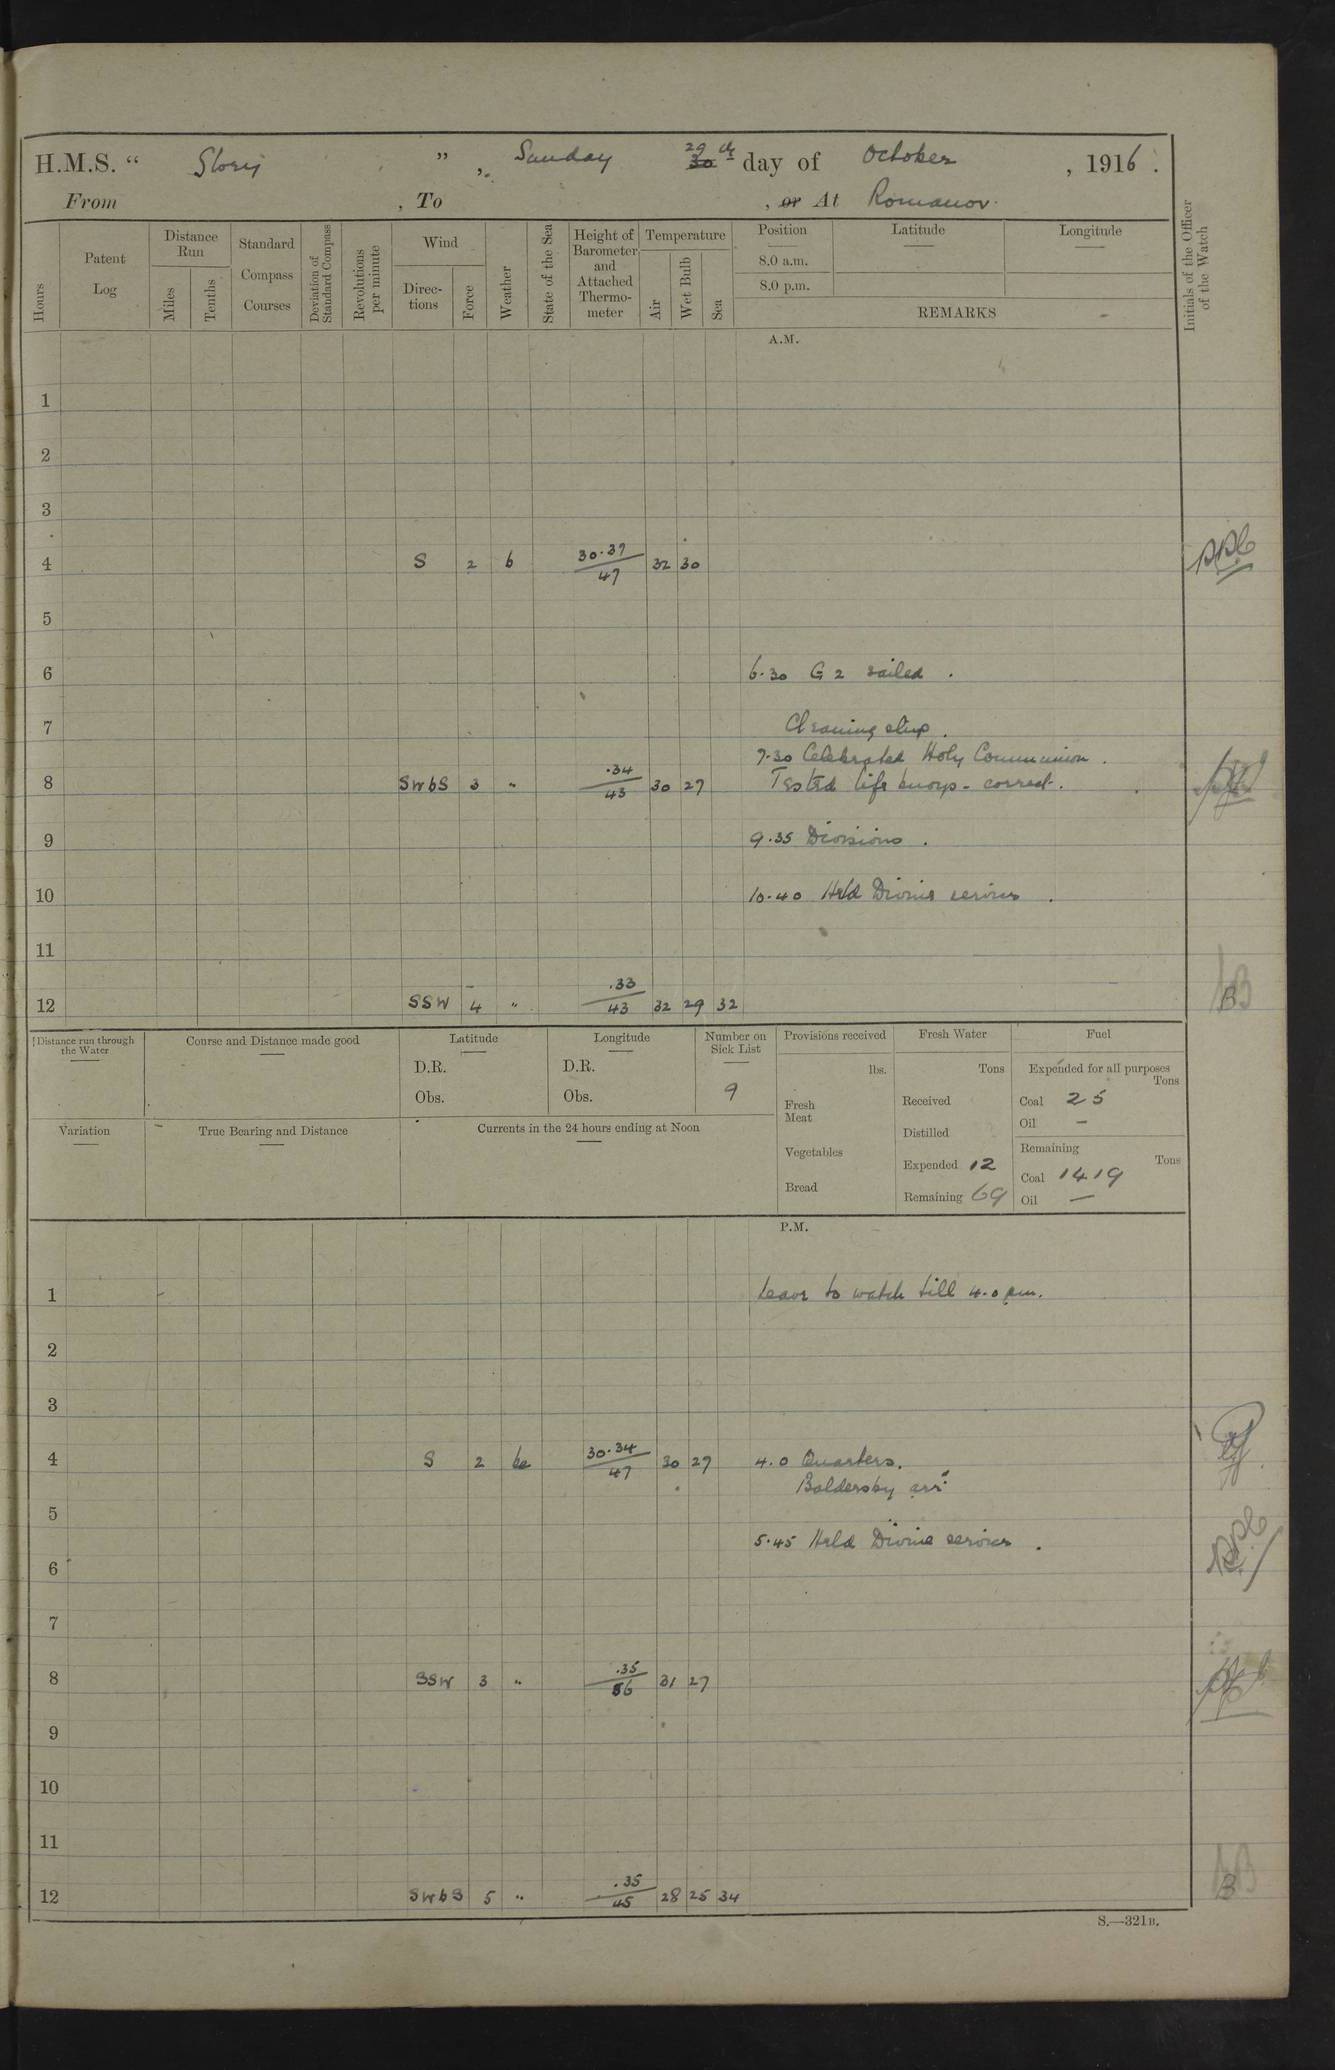 H.M.S. “ Glory ” , Sunday 30 29th day of October , 1916 .
From , To , or At Romanov.
Hours
Patent Log
Distance Run
Miles
Tenths
Standard Compass Courses
Deviation of Standard Compass
Revolutions per minute
Wind
Direc- tions
Force
Weather
State of the Sea
Height of Barometer and Attached Thermo- meter
Temperature
Air
Wet Bulb
Sea
Position
8.0 a.m.
8.0 p.m.
Latitude
Longitude
REMARKS
Initials of the Officer of the Watch
A.M.
1
2
3
4 S 2 b 30.37/47 32 30
5
6 6.30 G 2 sailed .
7 Cleaning ship .
7.30 Celebrated Holy Communion .
8 SWbS 3 " .34/43 30 27 Tested life buoys - correct .
9 9.35 Divisions .
10 10.40 Held Divine service .
11
12 SSW 4 " .33/43 32 29 32
Distance run through the Water
Course and Distance made good
Latitude
D.R.
Obs.
Longitude
D.R.
Obs.
Number on Sick List
9
Variation
True Bearing and Distance
Currents in the 24 hours ending at Noon
Provisions received
lbs.
Fresh Meat
Vegetables
Bread
Fresh Water
Tons
Received
Distilled
Expended 12
Remaining 69
Fuel
Expended for all purposes
Tons
Coal 25
Oil —
Remaining
Tons
Coal 1419
Oil —
P.M.
1 Leave to watch till 4.0 pm.
2
3
4 S 2 bc 30.34/47 30 27 4.0 Quarters.
Baldersby arr:
5
5.45 Held Divine service .
6
7
8 SSW 3 " .35/56 31 27
9
10
11
12 SWbS 5 " .35/45 28 25 34
S.—321B.